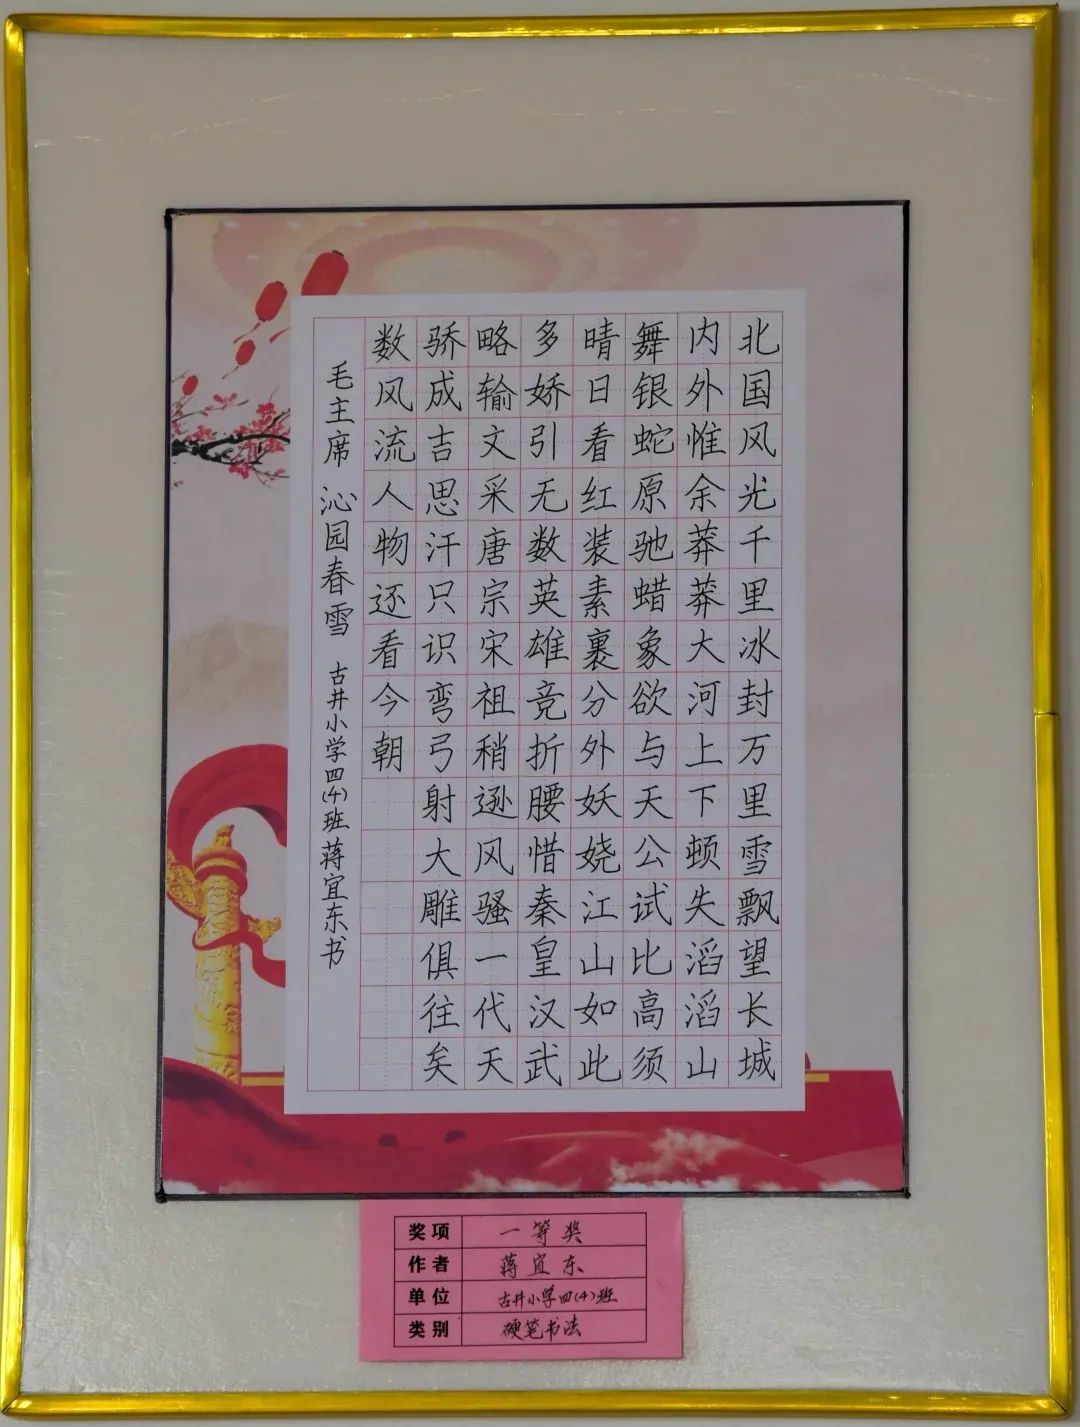 北国风光千里冰封万里雪飘望长城
内外惟余莽莽大河上下顿失滔滔山
舞银蛇原驰蜡象欲与天公试比高须
晴日看红装素裹分外妖娆江山如此
多娇引无数英雄竞折腰惜秦皇汉武
略输文采唐宗宋祖稍逊风骚一代天
骄成吉思汗只识弯弓射大雕俱往矣
数风流人物还看今朝
毛主席 沁园春雪 古井小学四(4)班蒋宜东书
奖项 一等奖
作者 蒋宜东
单位 古井小学四(4)班
类别 硬笔书法